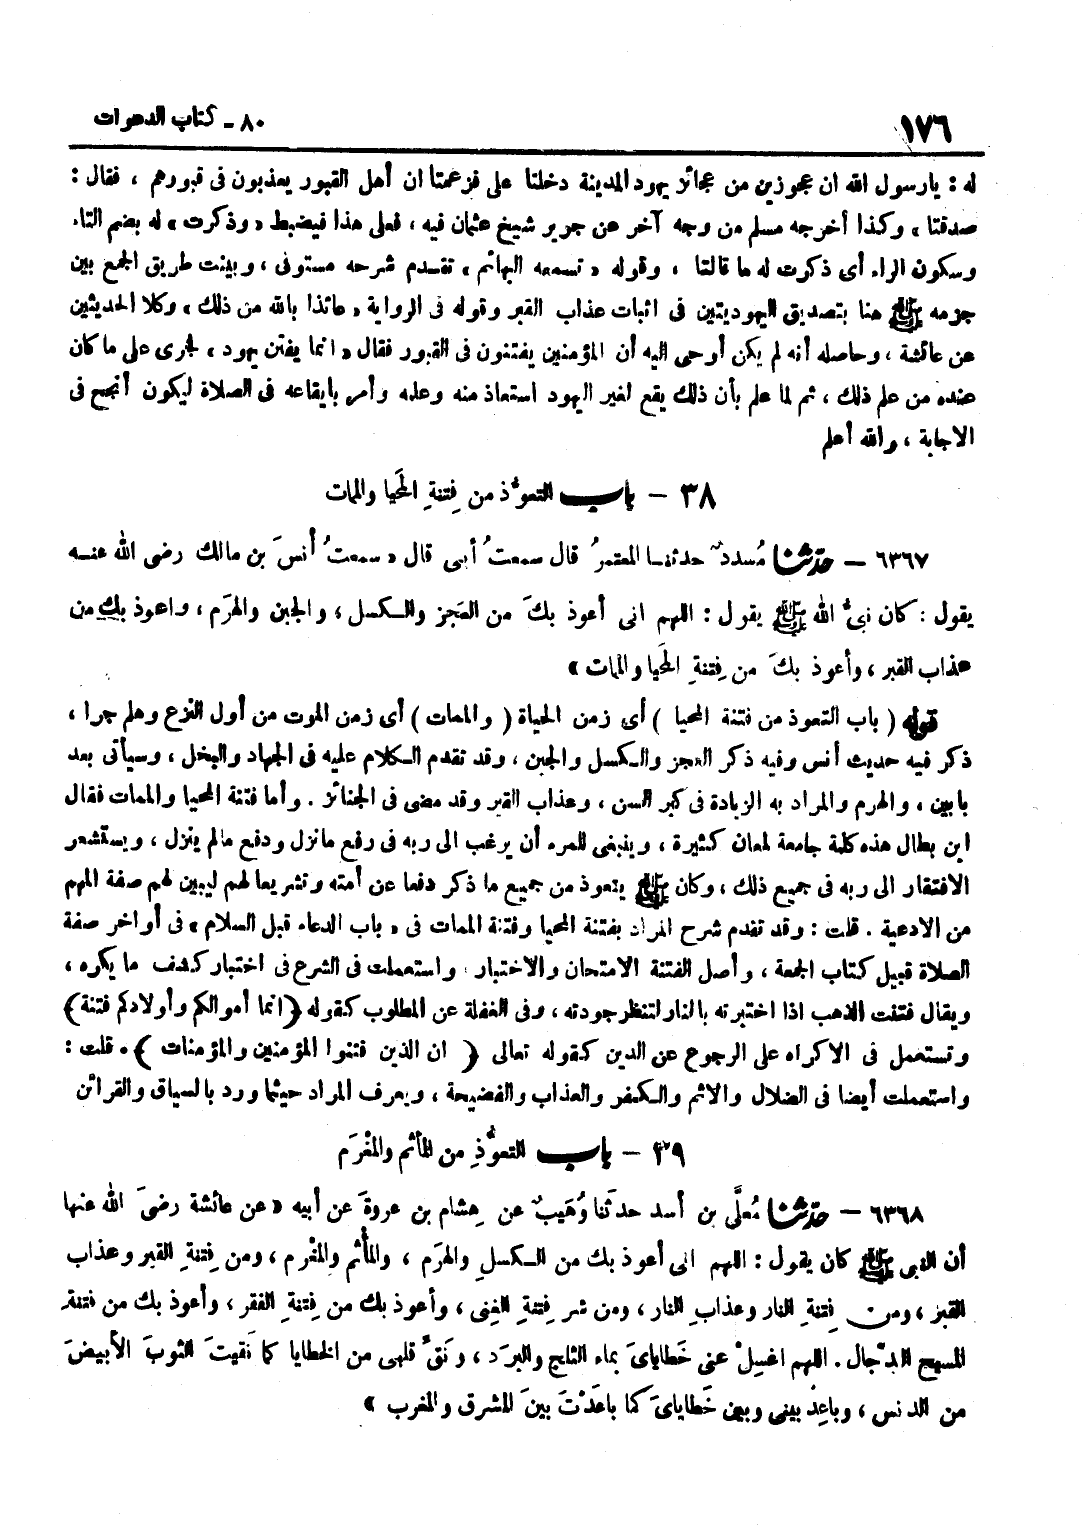 ١٧٦ ٨٠ - كتاب الدعوات
له : يارسول الله ان عجوزين من عجائز يهود المدينة دخلتا على فزعمتا ان أهل القبور يعذبون فى قبورهم ، فقال :
صدقتا » وكذا أخرجه مسلم من وجه آخر عن جرير شيخ عثمان فيه ، فعلى هذا فيضبط « وذكرت » له بضم التاء
وسكون الراء أى ذكرت له ما قالتا ، وقوله « تسمعه البهائم » تقدم شرحه مستوفى ، وبينت طريق الجمع بين
جزمه ﷺ هنا بتصديق اليهوديتين فى اثبات عذاب القبر وقوله فى الرواية « عائذا بالله من ذلك » وكلا الحديثين
عن عائشة ، وحاصله أنه لم يكن أوحى اليه أن المؤمنين يفتنون فى القبور فقال « انما يفتن يهود » لجرى على ما كان
عنده من علم ذلك ، ثم لما علم بأن ذلك يقع لغير اليهود استعاذ منه وعلمه وأمر بايقاعه فى الصلاة ليكون أنجح فى
الاجابة ، والله أعلم
٣٨ – باب التعوُّذ من فِتنةِ المَحيا والممات
٦٣٦٧ – حدّثنا مُسددٌ حدثنا المعتمرُ قال سمعتُ أبى قال « سمعتُ أنسَ بن مالك رضى الله عنه
يقول : كان نبىُّ الله ﷺ يقول : اللهم انى أعوذ بكَ من العَجز والكسل ، والجبن والهرَم ، واعوذ بك من
عذاب القبر ، وأعوذ بكَ من فِتنةِ المَحيا والممات »
قوله ( باب التعوذ من فتنة المحيا ) أى زمن الحياة ( والممات ) أى زمن الموت من أول النزع وهلم جرا ،
ذكر فيه حديث أنس وفيه ذكر العجز والكسل والجبن ، وقد تقدم الكلام عليه فى الجهاد والبخل ، وسيأتى بعد
بابين ، والهرم والمراد به الزيادة فى كبر السن ، وعذاب القبر وقد مضى فى الجنائز . وأما فتنة المحيا والممات فقال
ابن بطال هذه كلمة جامعة لمعان كثيرة ، وينبغى للمرء أن يرغب الى ربه فى رفع مانزل ودفع مالم ينزل ، ويستشعر
الافتقار الى ربه فى جميع ذلك ، وكان ﷺ يتعوذ من جميع ما ذكر دفعا عن أمته وتشريعا لهم ليبين لهم صفة المهم
من الادعية . قلت : وقد تقدم شرح المراد بفتنة المحيا وفتنة الممات فى « باب الدعاء قبل السلام » فى أواخر صفة
الصلاة قبيل كتاب الجمعة ، وأصل الفتنة الامتحان والاختبار ، واستعملت فى الشرع فى اختبار كشف ما يكره ،
ويقال فتنت الذهب اذا اختبرته بالنار لتنظر جودته ، وفى الغفلة عن المطلوب كقوله ﴿ انما أموالكم وأولادكم فتنة ﴾
وتستعمل فى الاكراه على الرجوع عن الدين كقوله تعالى ﴿ ان الذين فتنوا المؤمنين والمؤمنات ﴾ . قلت :
واستعملت أيضا فى الضلال والاثم والكفر والعذاب والفضيحة ، ويعرف المراد حيثما ورد بالسياق والقرائن
٣٩ – باب التعوُّذِ من المأثم والمغْرَم
٦٣٦٨ – حدّثنا مُعلَّى بن أسد حدثَنا وُهَيبٌ عن هِشام بن عروةَ عن أبيه « عن عائشة رضىَ الله عنها
أن النبى ﷺ كان يقول : اللهم انى أعوذ بك من الكسلِ والهرَم ، والمأْثم والمغْرم ، ومن فِتنةِ القبر وعذاب
القبر ، ومن فِتنةِ النار وعذابِ النار ، ومن شر فِتنةِ الغِنى ، وأعوذ بك من فِتنةِ الفقر ، وأعوذ بك من فتنة
المسيح الدجّال . اللهم اغسِلْ عنى خَطاياىَ بماء الثلج والبرَد ، ونَقِّ قلبى من الخطايا كما نَقيتَ الثوبَ الأبيضَ
من الدنس ، وباعِدْ بينى وبين خَطاياىَ كما باعَدْتَ بينَ المشرق والمغرب »